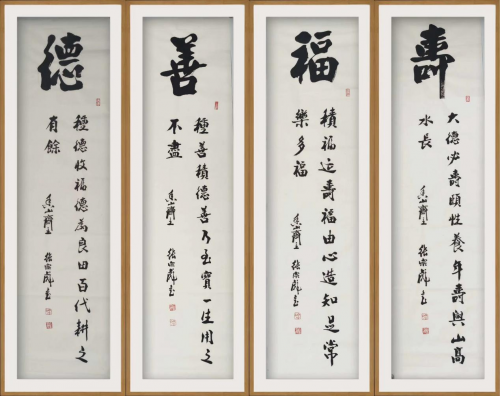 壽
大德必壽頤性養年壽與山高
水長
福
積福延壽福由心造知足常
樂多福
善
種善積德善乃至寶一生用之
不盡
德
種德收福德為良田百代耕之
有餘